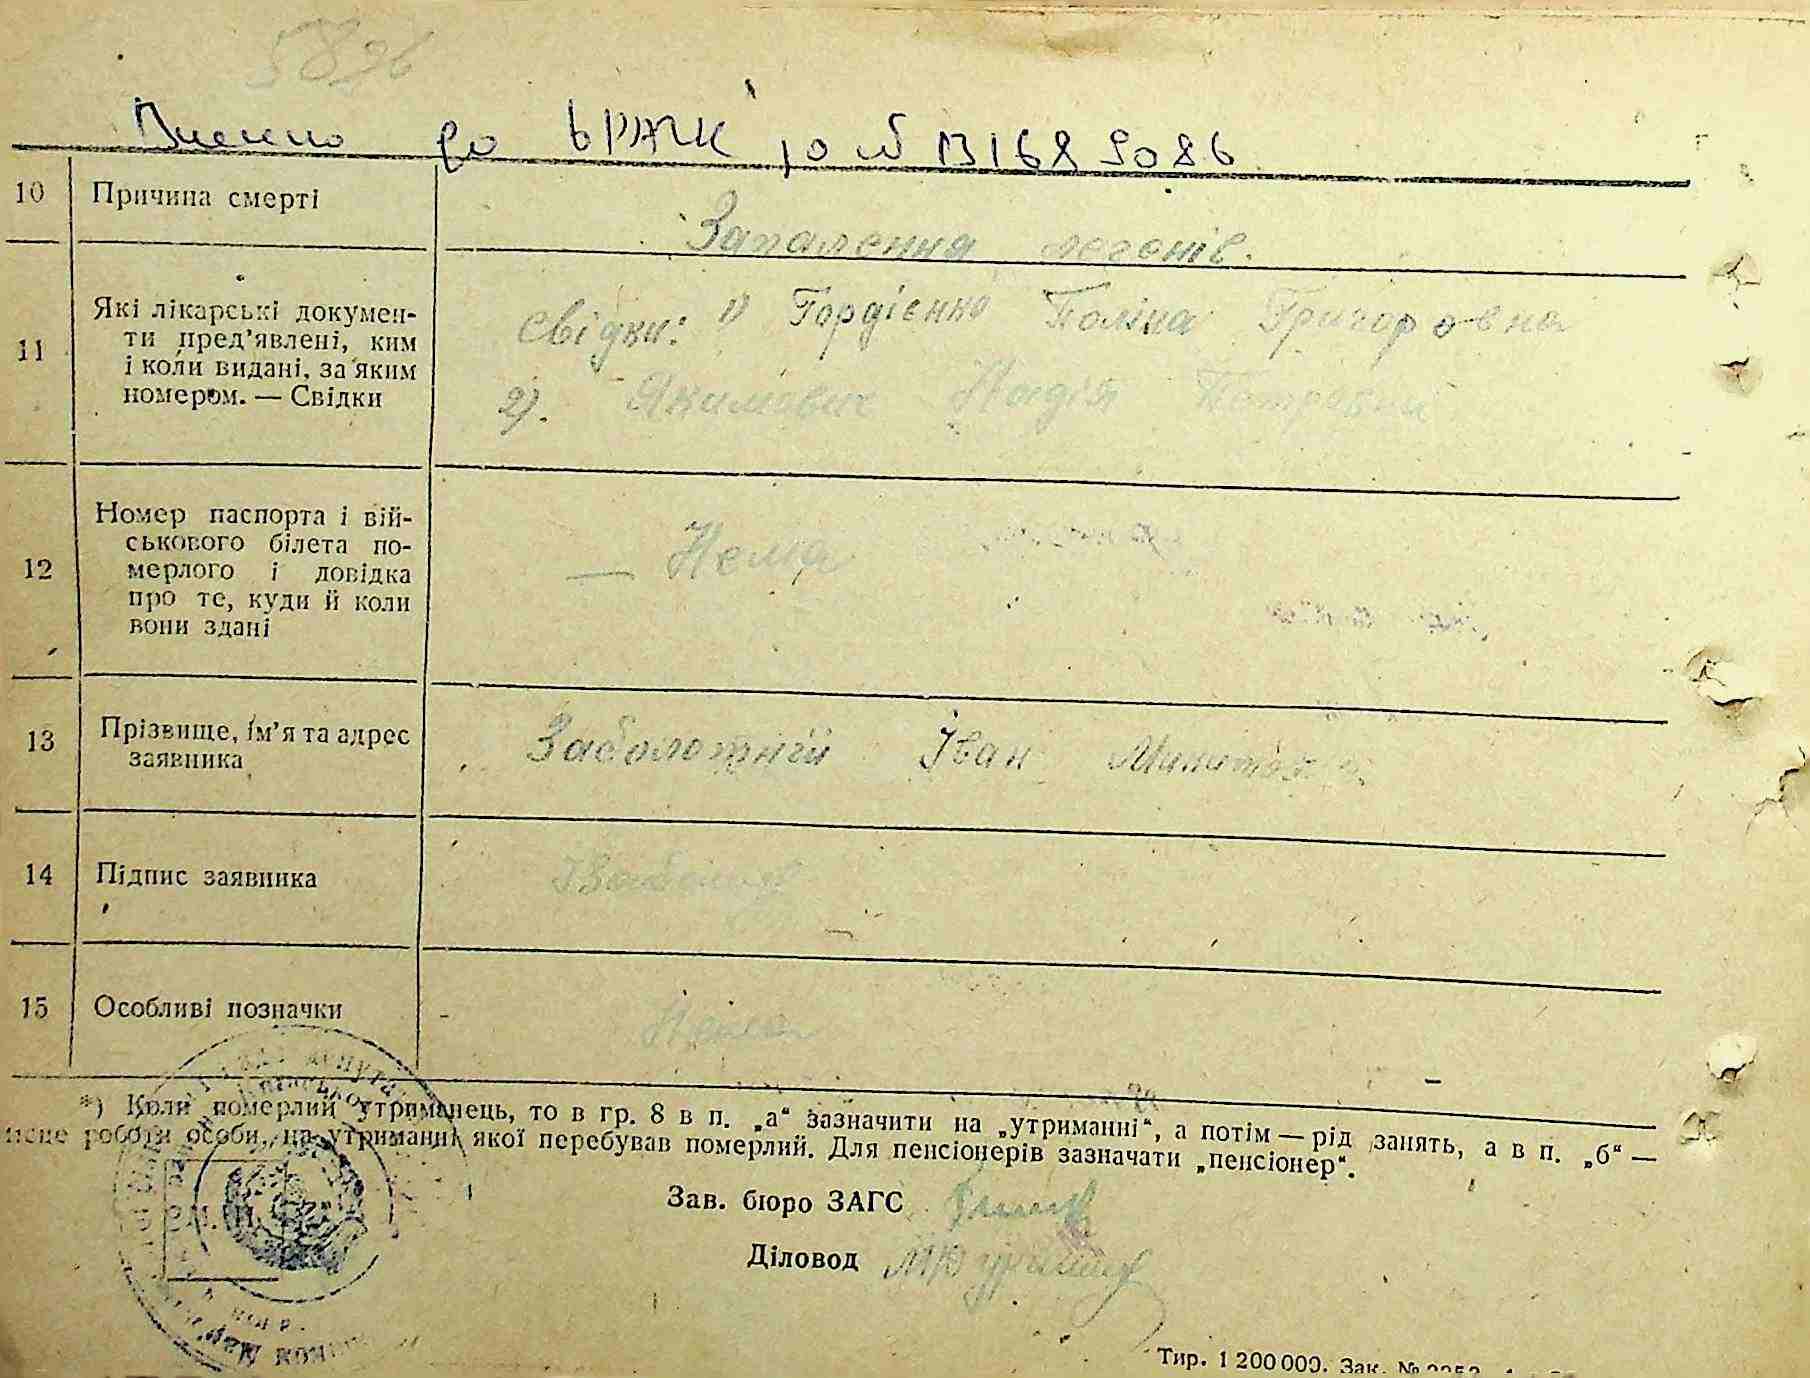 5896
Внесено до ЬРАЧК
10 Причина смерті Запалення легенів.
11 Які лікарські докумен-
ти пред'явлені, ким
і коли видані, за яким
номером. — Свідки
Свідки: 1) Гордієнко Поліна Григоровна
2). Якимович Надія Петровна
12 Номер паспорта і вій-
ськового білета по-
мерлого і довідка
про те, куди й коли
вони здані
— Нема
13 Прізвище, ім'я та адрес
заявника
Заболотній Іван
14 Підпис заявника
15 Особливі позначки Нема
*) Коли померлий утриманець, то в гр. 8 в п. „а“ зазначити на „утриманні“, а потім — рід занять, а в п. „б“ —
місце роботи особи, на утриманні якої перебував померлий. Для пенсіонерів зазначати „пенсіонер“.
М. П.
Зав. бюро ЗАГС
Діловод
Тир. 1 200 000. Зак. №